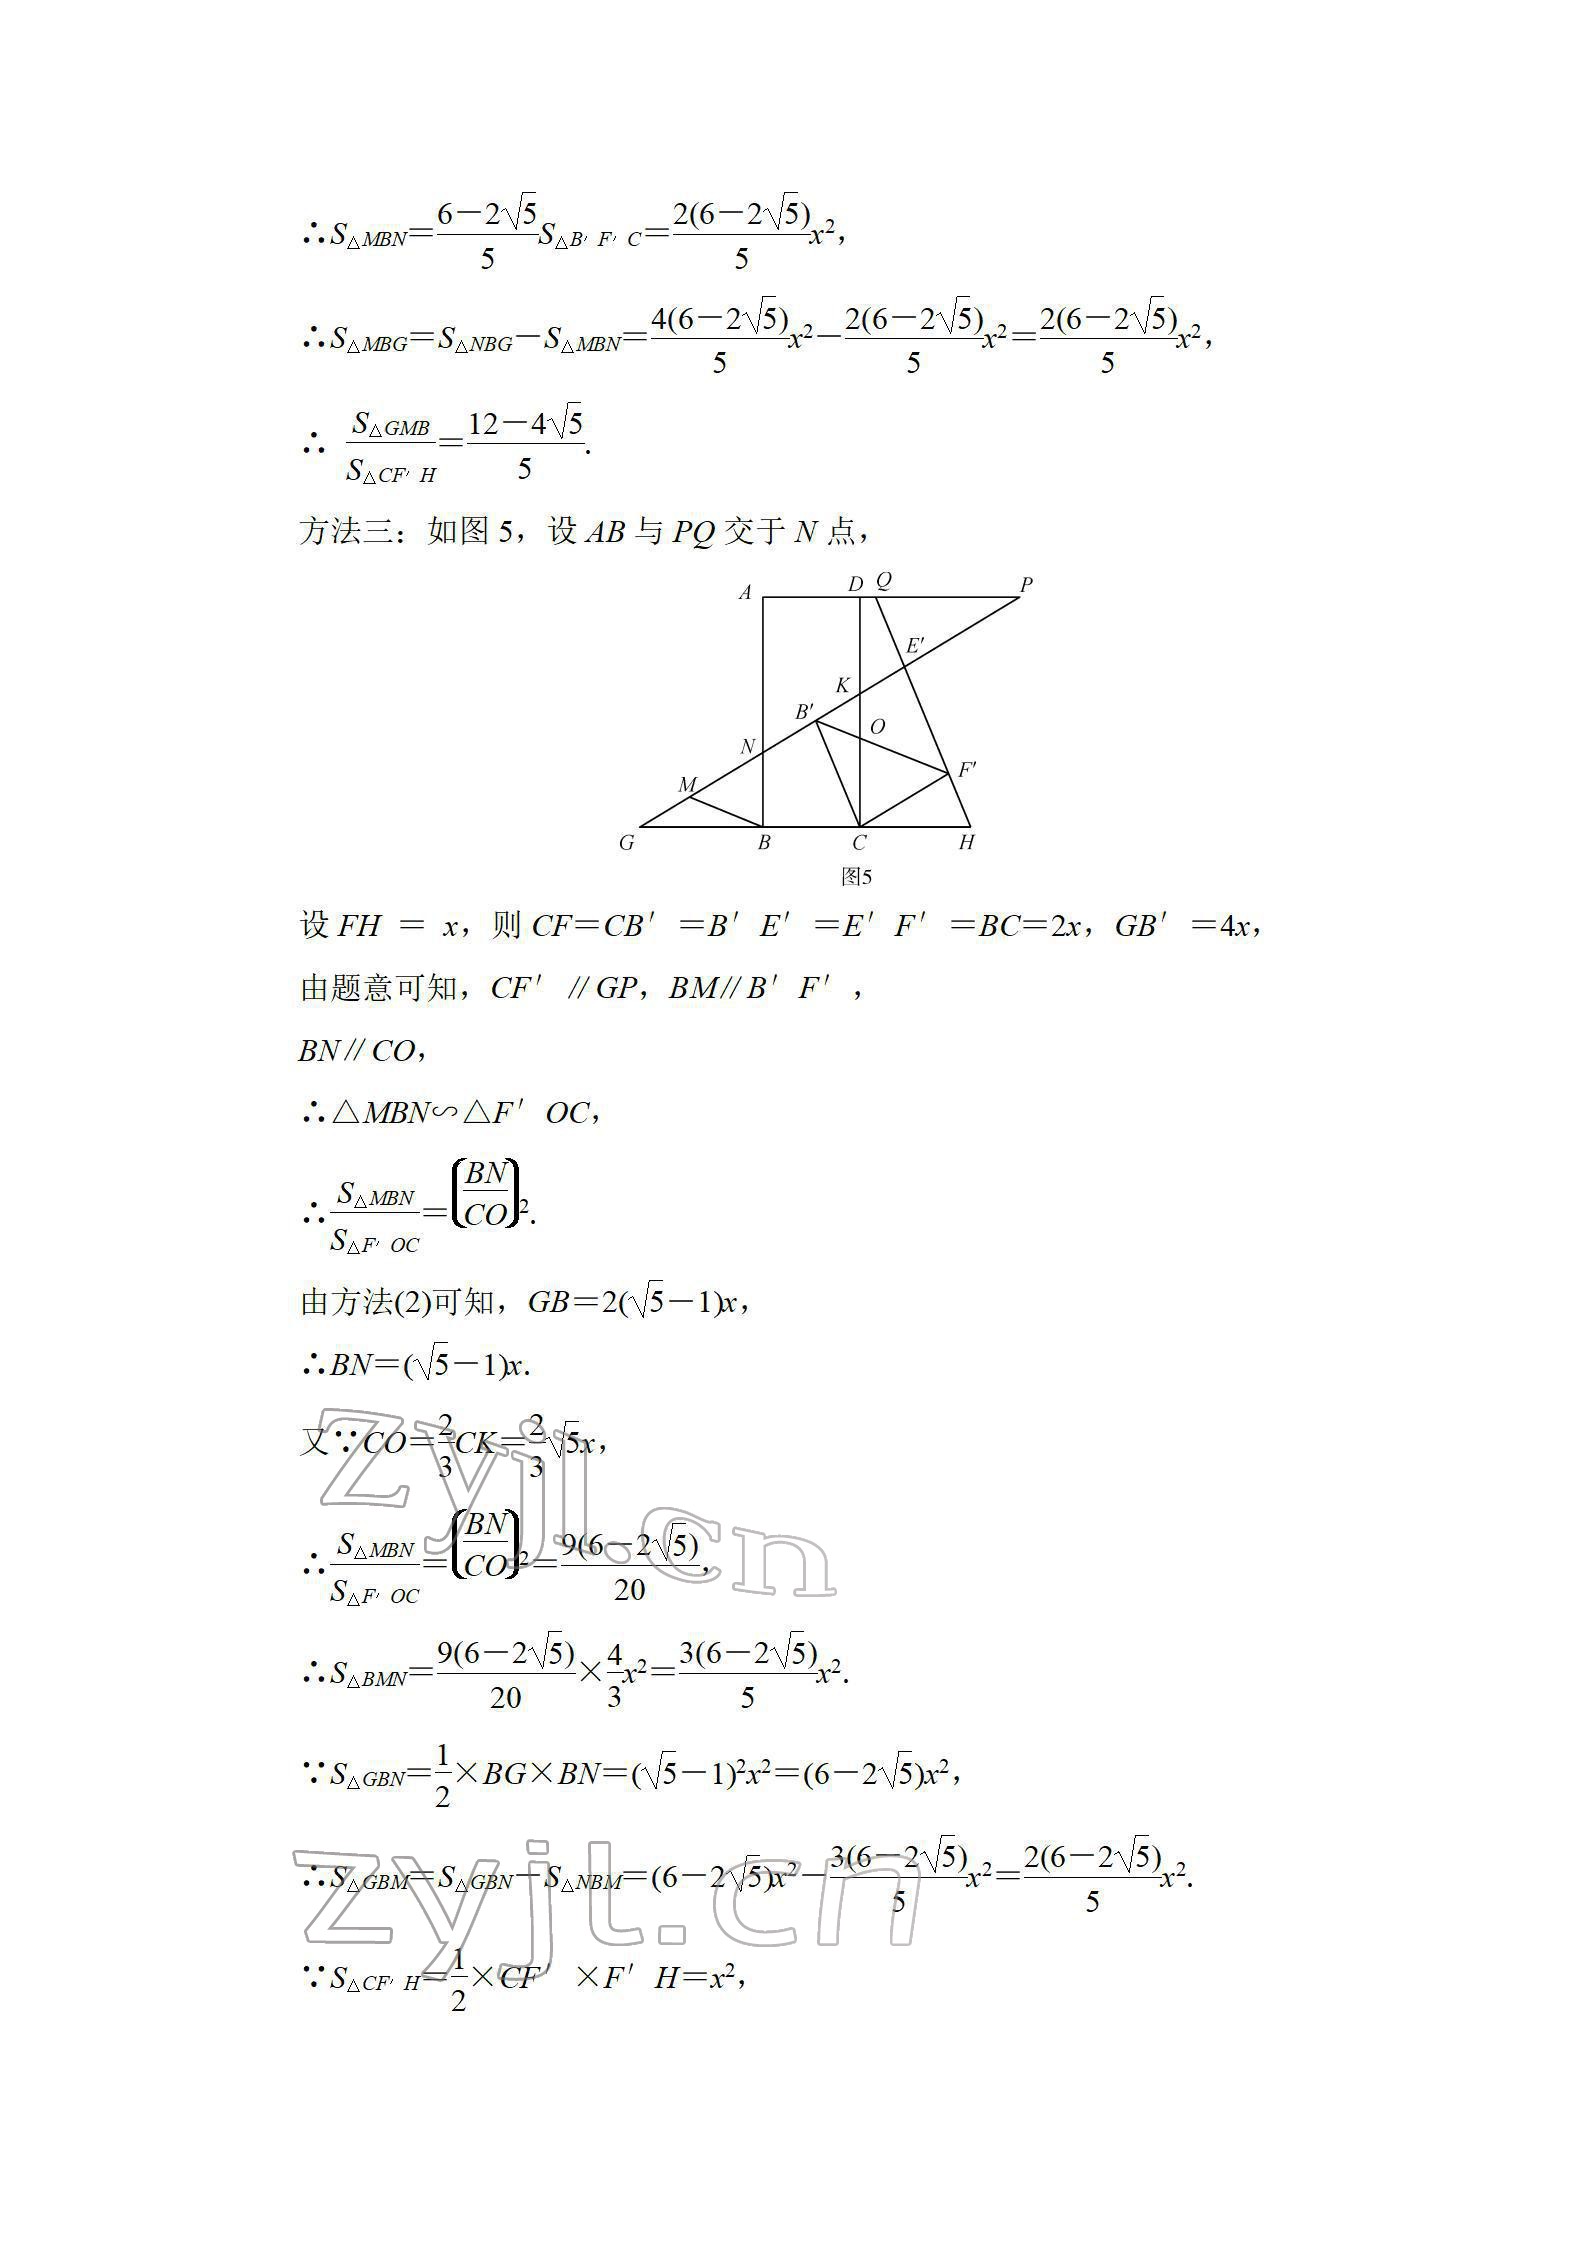 ∴S△MBN=(6-2√5)/5 S△B′F′C=2(6-2√5)/5 x²,
∴S△MBG=S△NBG-S△MBN=4(6-2√5)/5 x²-2(6-2√5)/5 x²=2(6-2√5)/5 x²,
∴ S△GMB/S△CF′H=(12-4√5)/5.
方法三：如图 5，设 AB 与 PQ 交于 N 点，
A D Q P
E′
K
B′
O
N
F′
M
G B C H
图5
设 FH = x，则 CF=CB′=B′E′=E′F′=BC=2x，GB′=4x，
由题意可知，CF′∥GP，BM∥B′F′，
BN∥CO，
∴△MBN∽△F′OC，
∴S△MBN/S△F′OC=(BN/CO)².
由方法(2)可知，GB=2(√5-1)x，
∴BN=(√5-1)x.
又∵CO=2/3 CK=2/3 √5x，
∴S△MBN/S△F′OC=(BN/CO)²=9(6-2√5)/20，
∴S△BMN=9(6-2√5)/20×4/3 x²=3(6-2√5)/5 x².
∵S△GBN=1/2×BG×BN=(√5-1)²x²=(6-2√5)x²，
∴S△GBM=S△GBN-S△NBM=(6-2√5)x²-3(6-2√5)/5 x²=2(6-2√5)/5 x².
∵S△CF′H=1/2×CF′×F′H=x²，
zyjl.cn
zyjl.cn